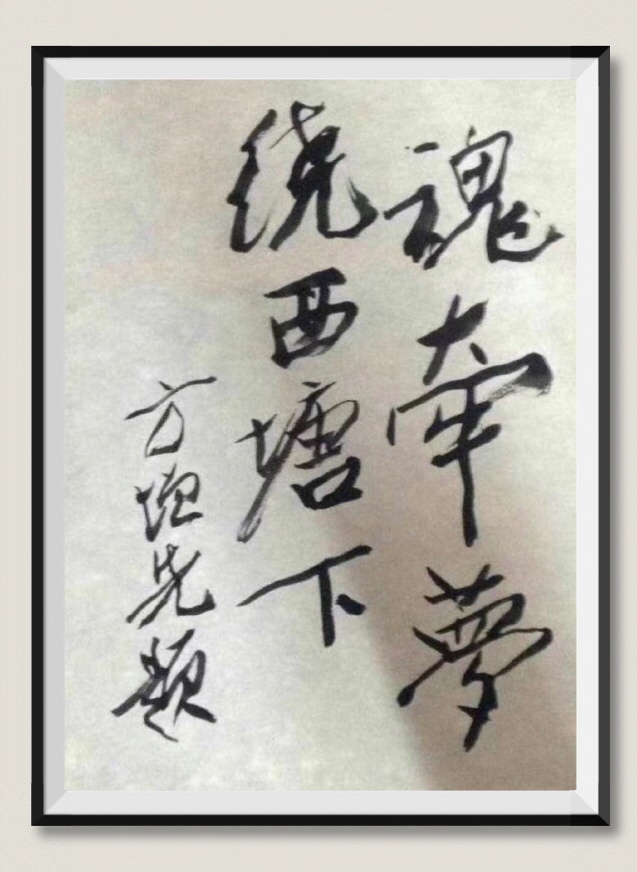 魂牵夢
绕西塘下
方增先题